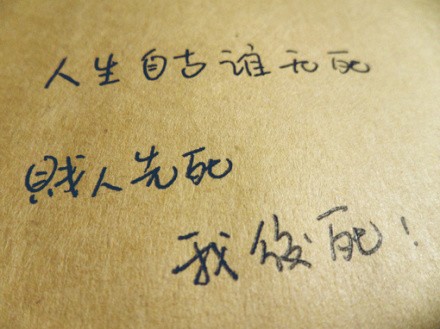 人生自古谁无死
贱人先死
我後死！